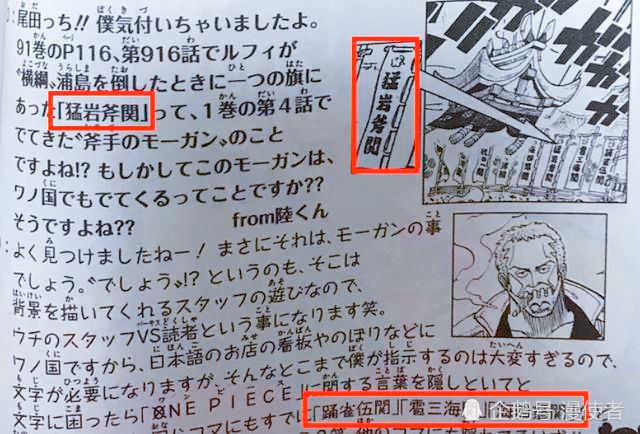 尾田っち!! 僕気付いちゃいましたよ。
91巻のP116、第916話でルフィが
〝横綱〟浦島を倒したときに一つの旗に
あった「猛岩斧関」って、1巻の第4話で
でてきた〝斧手のモーガン〟のこと
ですよね!? もしかしてこのモーガンは、
ワノ国でもでてくるってことですか??
そうですよね??
from陸くん
猛岩斧関
よく見つけましたねー! まさにそれは、モーガンの事
でしょう。〝でしょう〟!? というのも、そこは
背景を描いてくれるスタッフの遊びなので、
ウチのスタッフVS読者という事になります笑。
ワノ国ですから、日本語のお店の看板やのぼりなどに
文字が必要になりますが、そんなとこまで僕が指示するのは大変すぎるので、
文字に困ったら「ONE PIECE」に関する言葉を隠しといてと
「踊雀伍関」「雹三海関」
企鹅号 漫使者